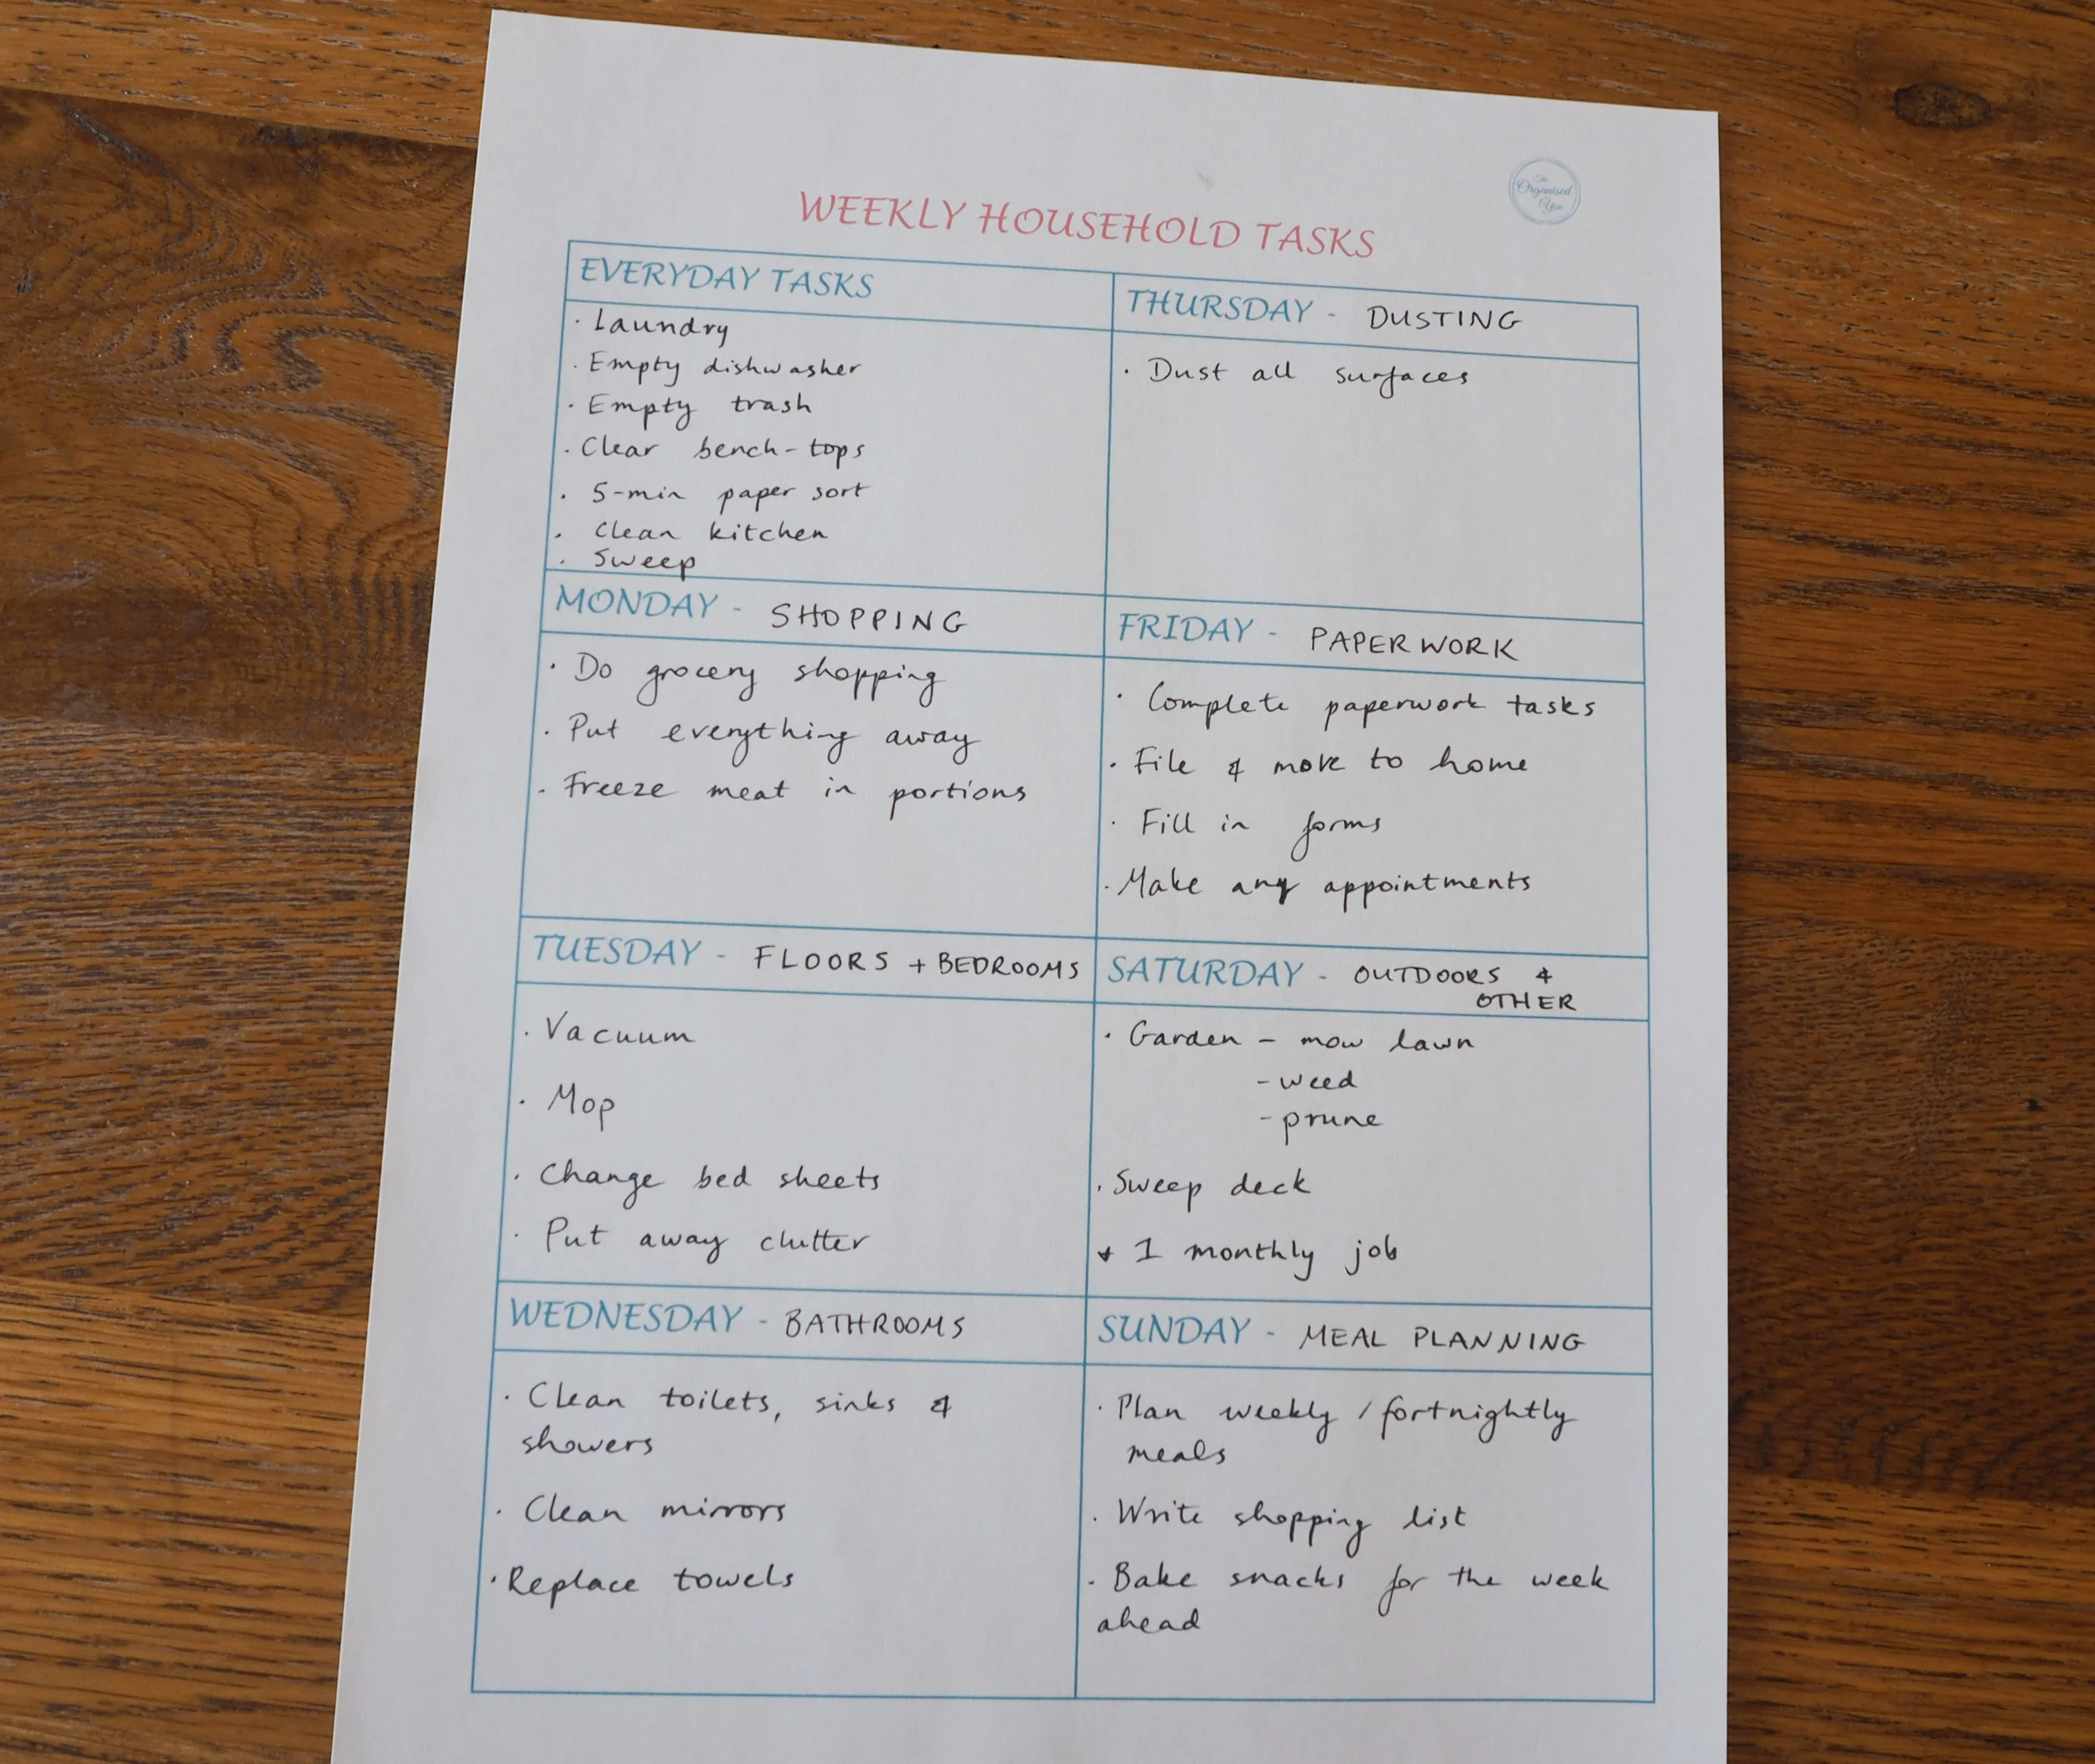 The
Organised
You
WEEKLY HOUSEHOLD TASKS
EVERYDAY TASKS
· Laundry
· Empty dishwasher
· Empty trash
· Clear bench-tops
· 5-min paper sort
· Clean kitchen
· Sweep
MONDAY - SHOPPING
· Do grocery shopping
· Put everything away
· Freeze meat in portions
TUESDAY - FLOORS + BEDROOMS
· Vacuum
· Mop
· Change bed sheets
· Put away clutter
WEDNESDAY - BATHROOMS
· Clean toilets, sinks &
showers
· Clean mirrors
· Replace towels
THURSDAY - DUSTING
· Dust all surfaces
FRIDAY - PAPERWORK
· Complete paperwork tasks
· File & move to home
· Fill in forms
· Make any appointments
SATURDAY - OUTDOORS &
OTHER
· Garden - mow lawn
- weed
- prune
· Sweep deck
+ 1 monthly job
SUNDAY - MEAL PLANNING
· Plan weekly / fortnightly
meals
· Write shopping list
· Bake snacks for the week
ahead